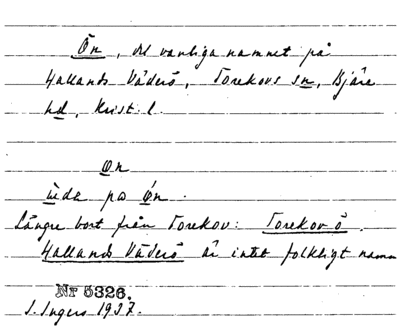 Ön, det vanliga namnet på
Hallands Väderö, Torekovs sn, Bjäre
hd, Krist. l.
Ön
ude på Ön.
Längre bort från Torekov: Torekov ö.
Hallands Väderö är intet folkligt namn
Nr 5326.
I. Ingers 1937.